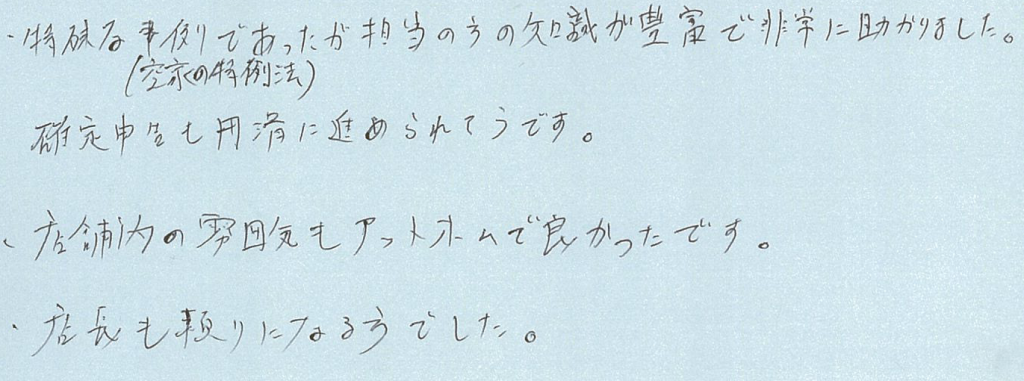 ・特殊な事例であったが担当の方の知識が豊富で非常に助かりました。
(空家の特例法)
確定申告も円滑に進められてそうです。
・店舗内の雰囲気もアットホームで良かったです。
・店長も頼りになる方でした。